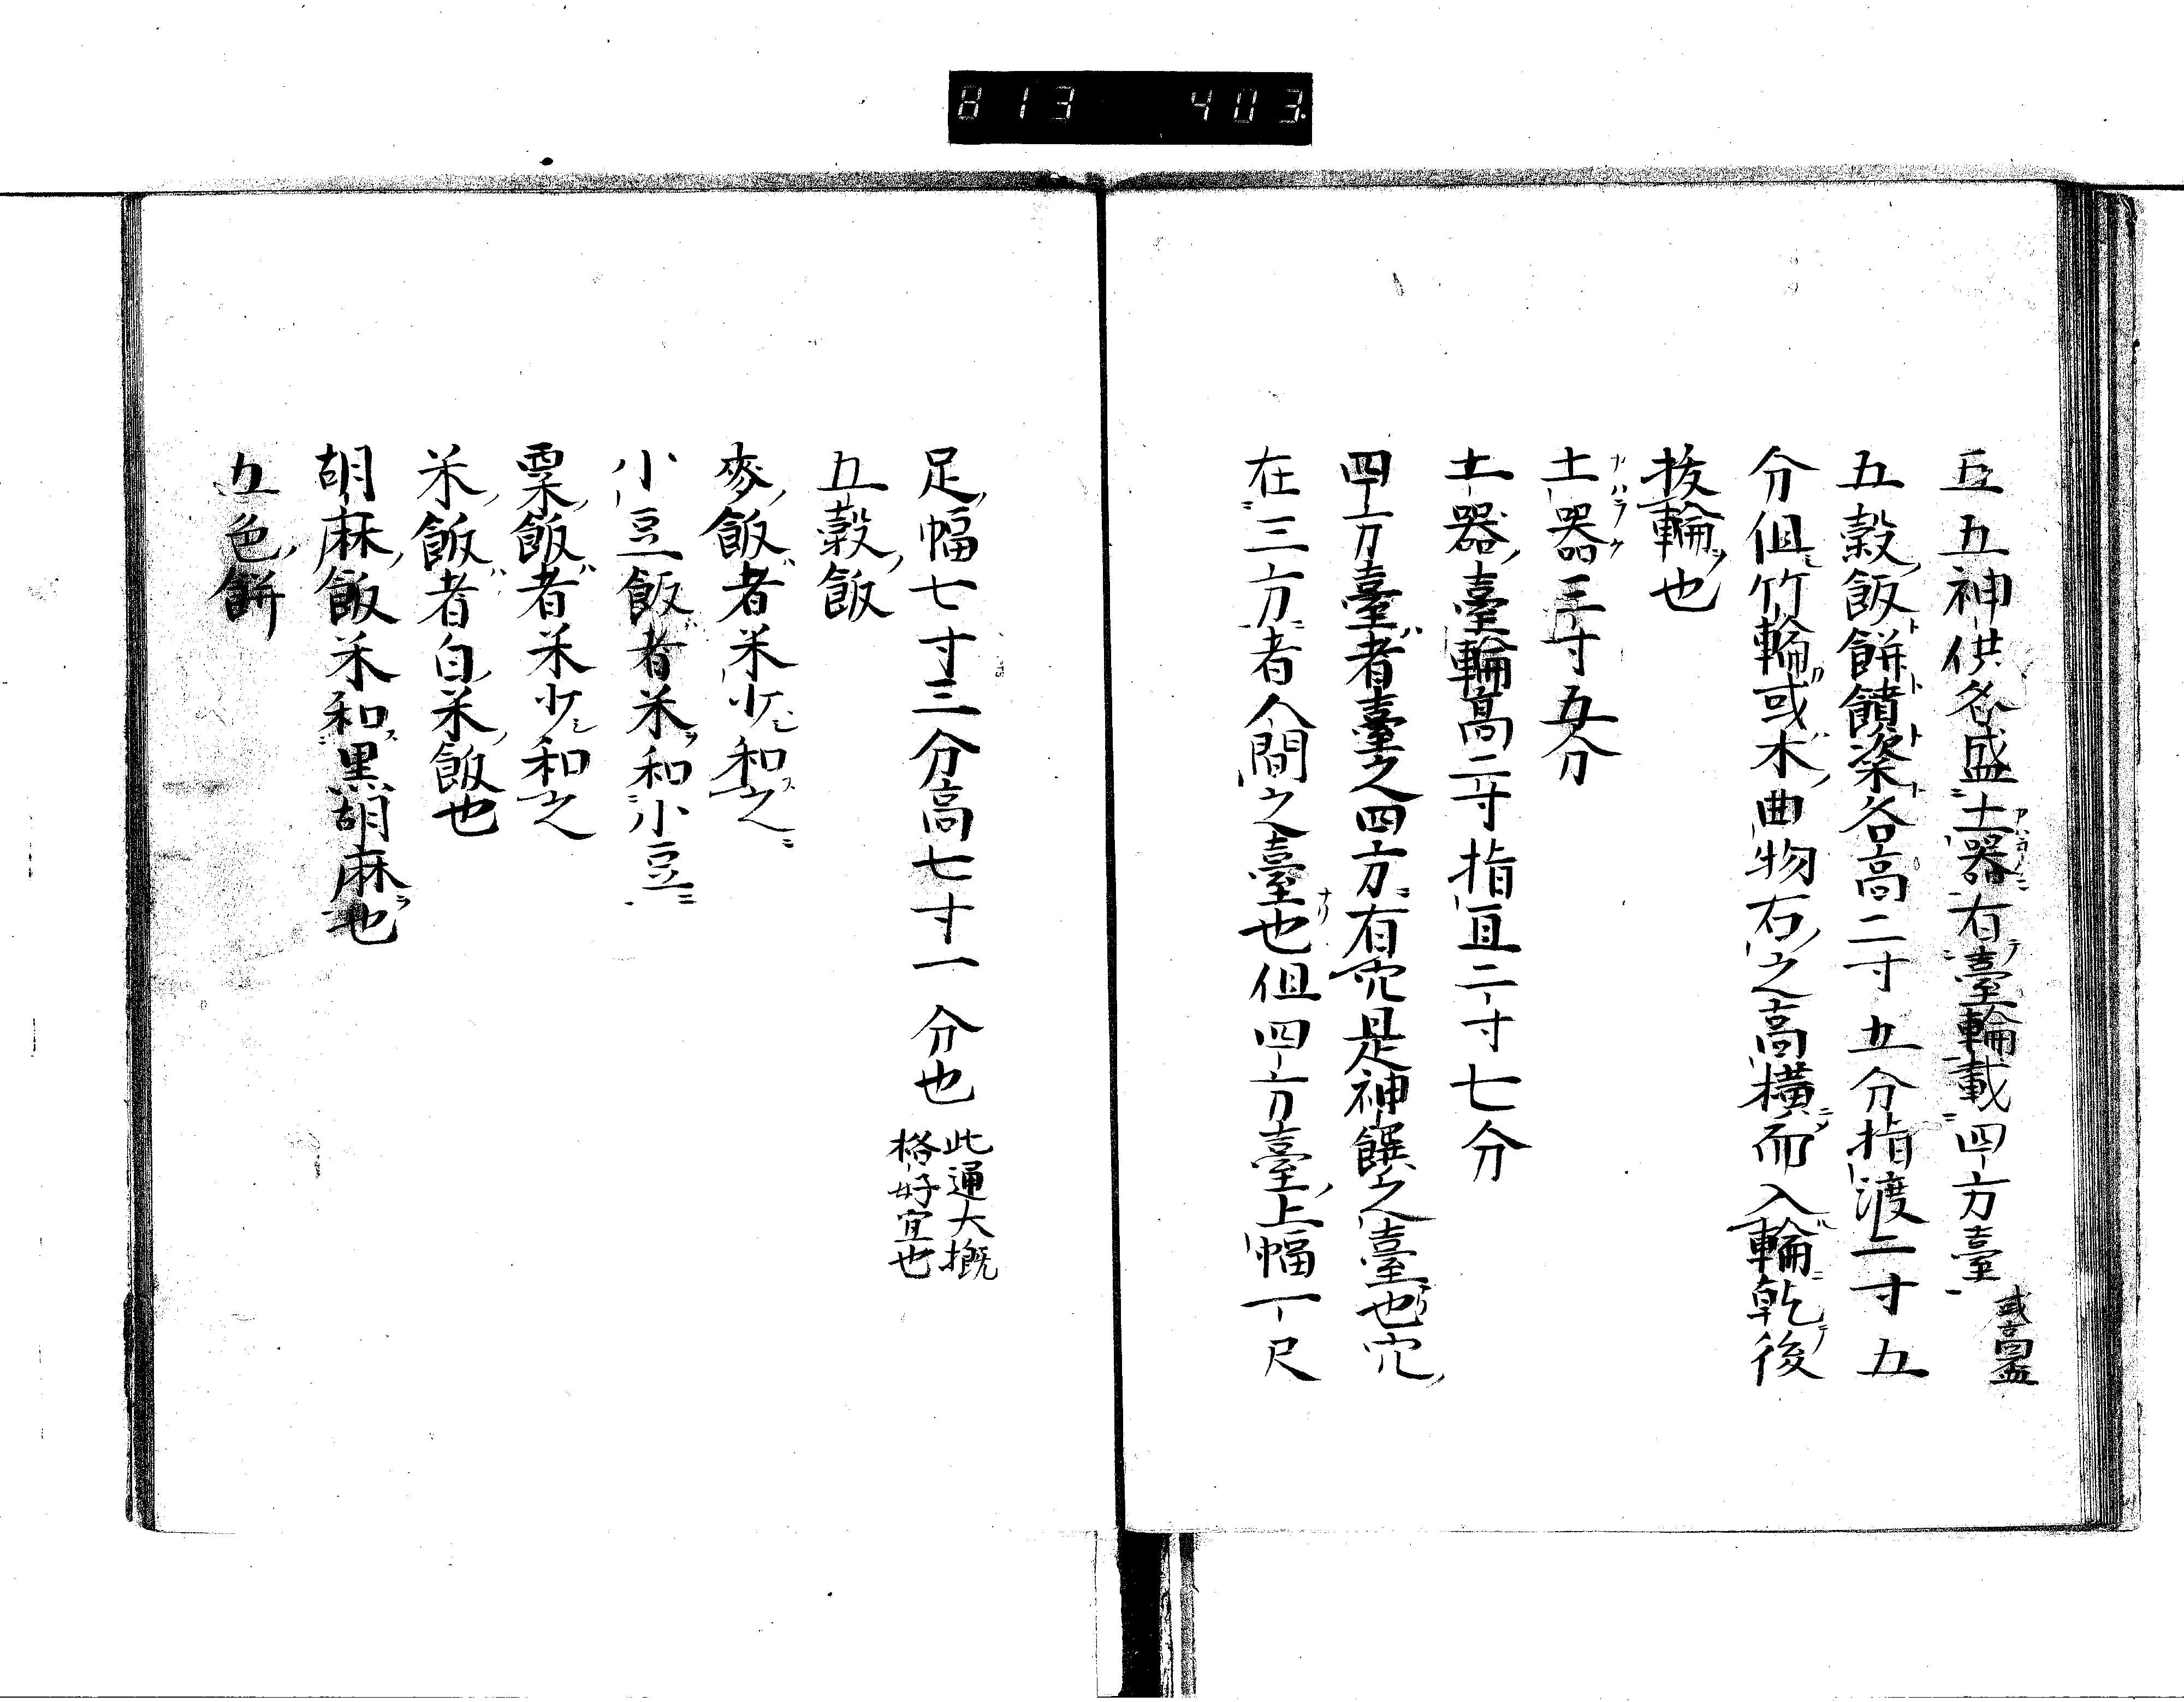 813 403.
五神供各盛土器有臺輪載四方臺 或高盃
五穀飯餅饙粢各高二寸五分指渡二寸五
分但竹輪或木曲物右之高横而入輪乾後
拔輪也
土器三寸五分
土器臺輪高二寸指亘二寸七分
四方臺者臺之四方有穴是神饌之臺也穴
在三方者人間之臺也但四方臺上幅一尺
足幅七寸三分高七寸一分也 此通大概格好宜也
五穀飯
麥飯者米少和之
小豆飯者米和小豆
粟飯者米少和之
米飯者白米飯也
胡麻飯米和黒胡麻也
五色餅